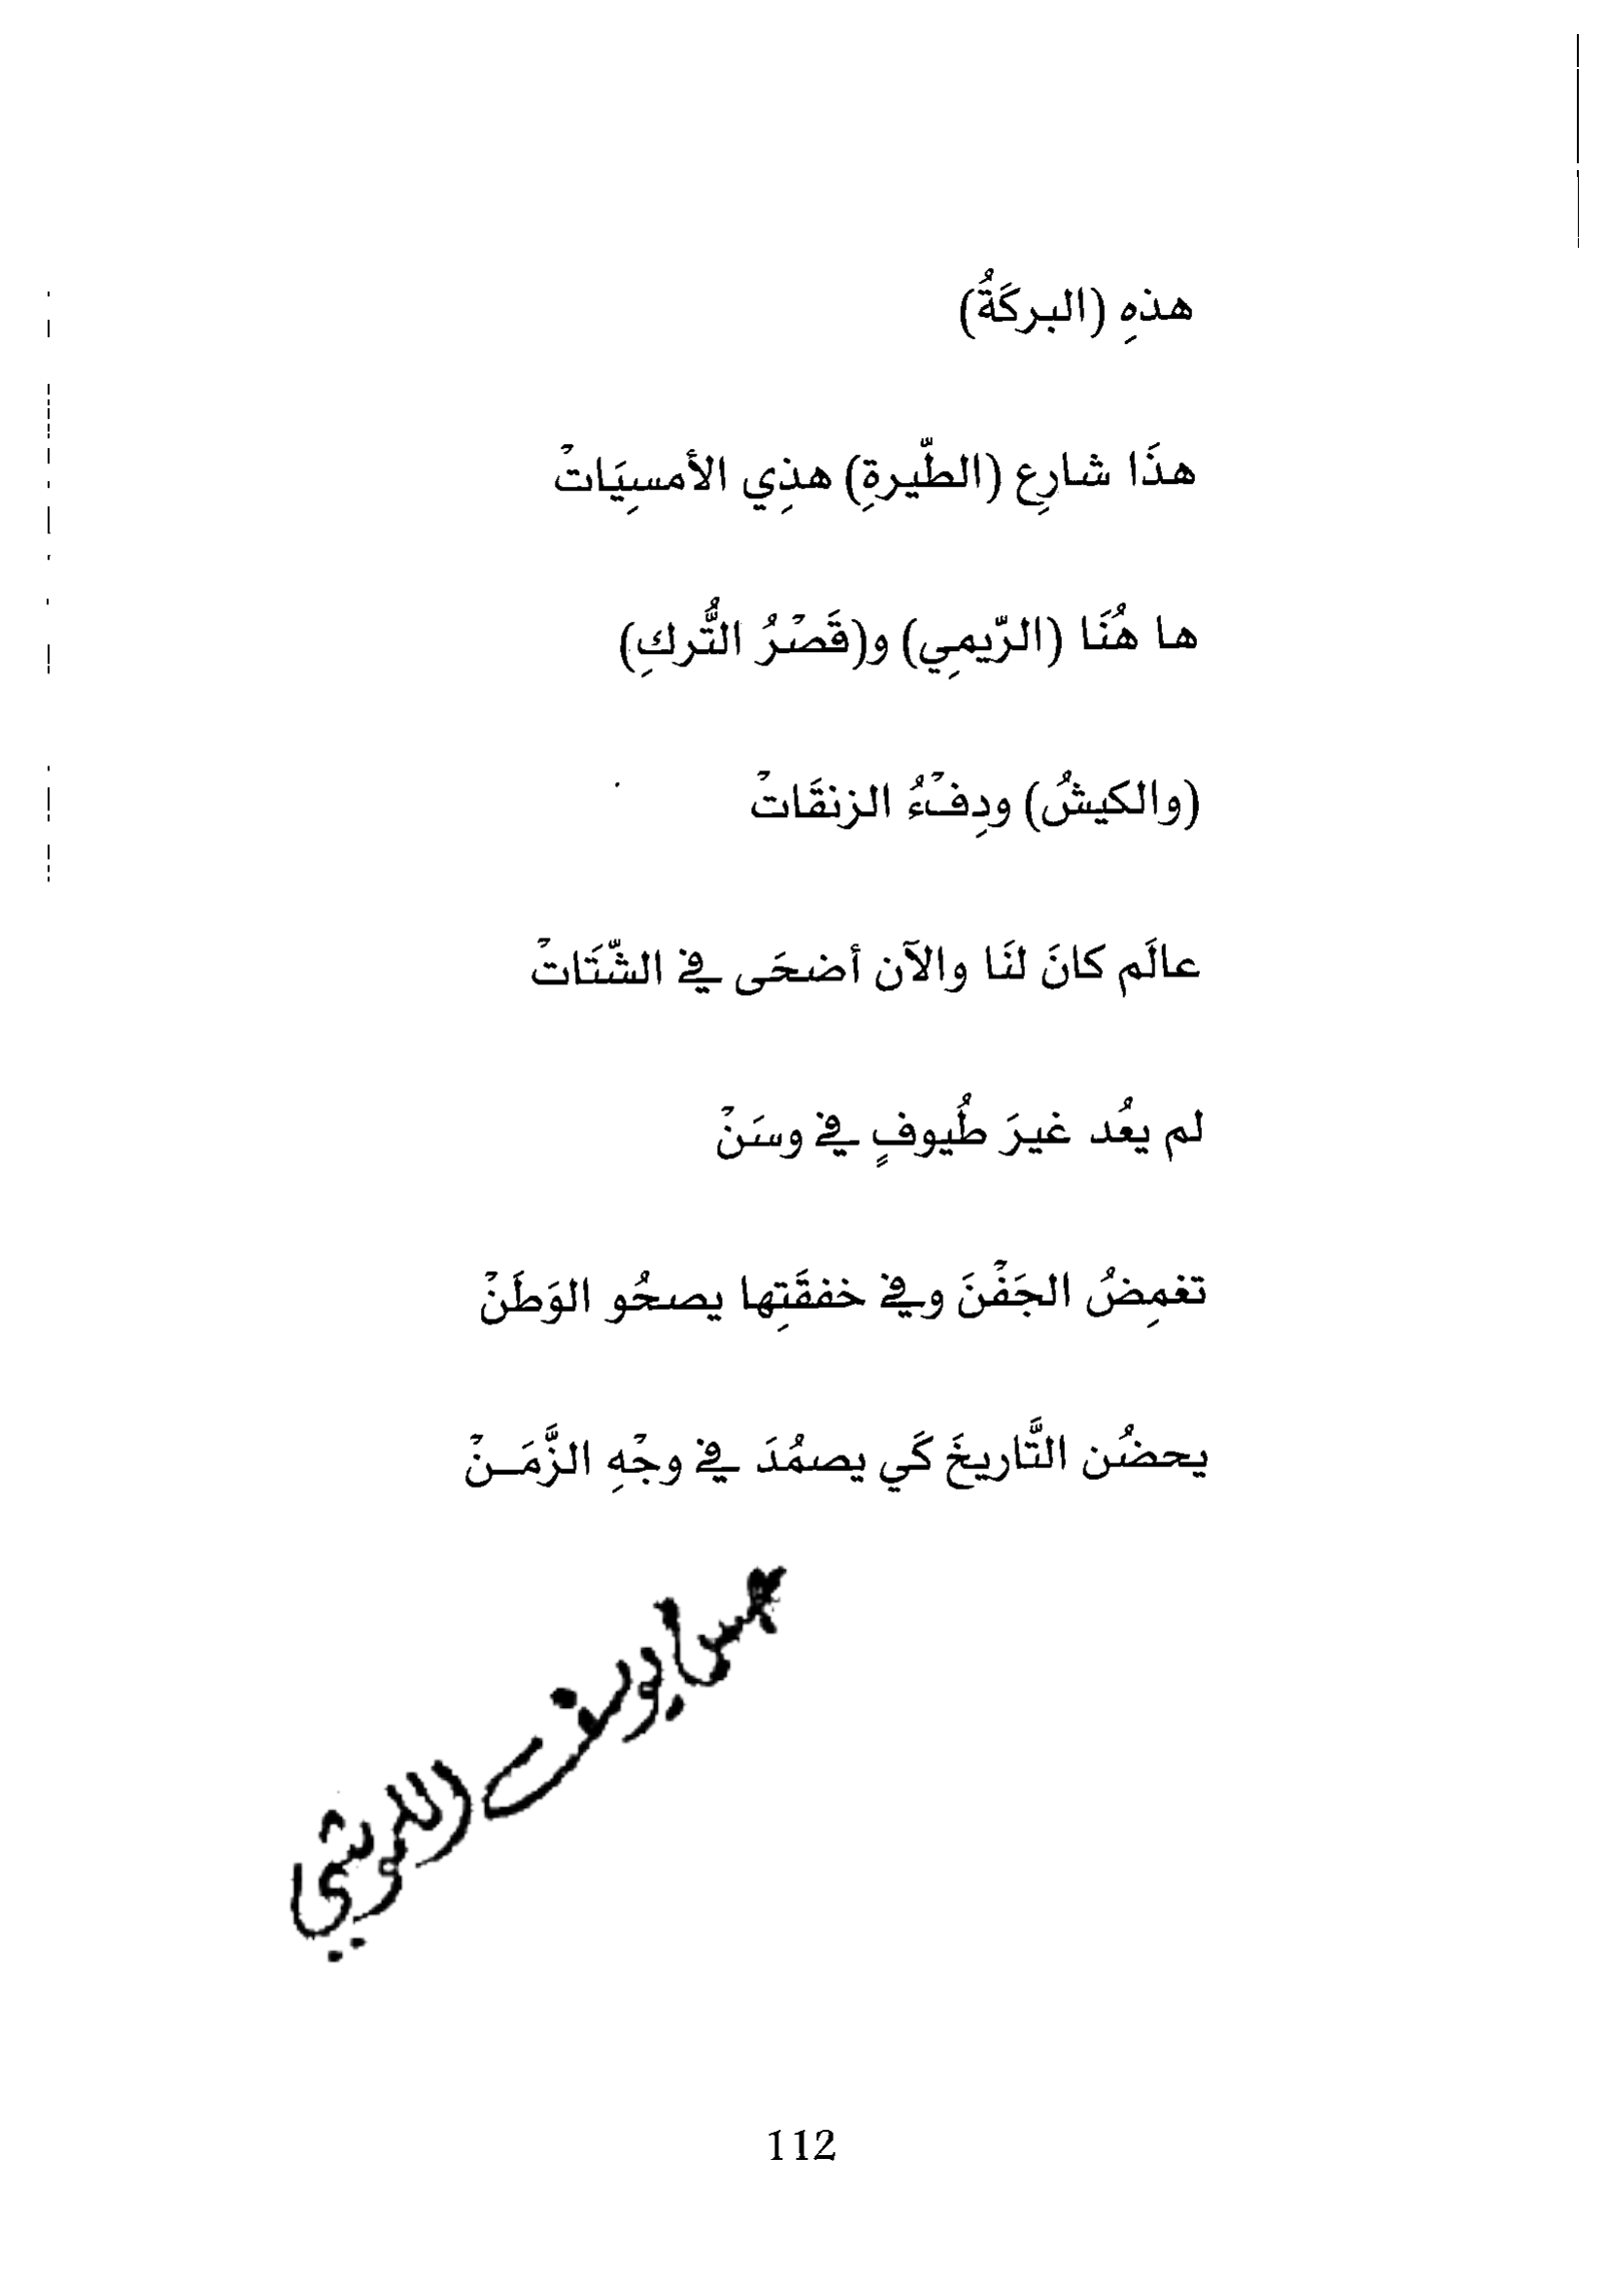 هذهِ (البركَةُ)
هذَا شارِع (الطّيرةِ) هذِي الأمسِيَاتْ
ها هُنَا (الرّيمِي) و(قَصْرُ التُّركِ)
(والكيشُ) ودِفْءُ الزنقَاتْ
عالَم كانَ لنَا والآن أضحَى في الشّتَاتْ
لم يعُد غيرَ طُيوفٍ في وسَنْ
تغمِضُ الجَفْنَ وفي خفقَتِها يصحُو الوَطَنْ
يحضُن التَّاريخَ كَي يصمُدَ في وجْهِ الزَّمَــنْ
يوسف
112